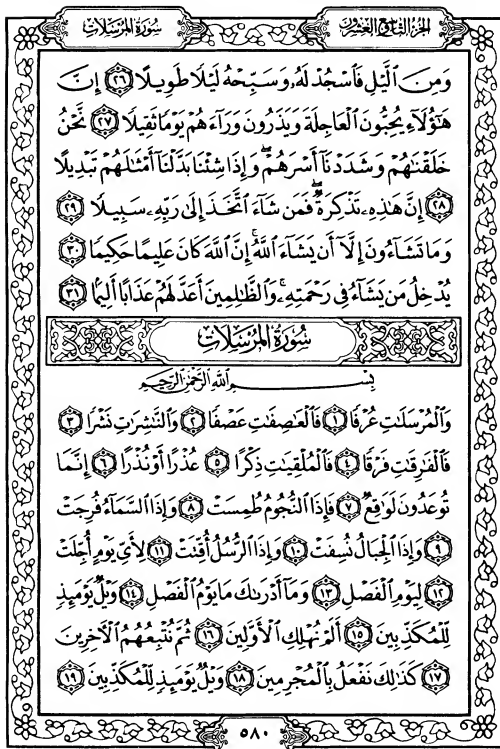 سُورَةُ المُرْسَلَات الجُزْءُ التَّاسِعُ وَالعِشْرُون
وَمِنَ ٱلَّيْلِ فَٱسْجُدْ لَهُۥ وَسَبِّحْهُ لَيْلًا طَوِيلًا ٢٦ إِنَّ
هَٰٓؤُلَآءِ يُحِبُّونَ ٱلْعَاجِلَةَ وَيَذَرُونَ وَرَآءَهُمْ يَوْمًا ثَقِيلًا ٢٧ نَّحْنُ
خَلَقْنَٰهُمْ وَشَدَدْنَآ أَسْرَهُمْ ۖ وَإِذَا شِئْنَا بَدَّلْنَآ أَمْثَٰلَهُمْ تَبْدِيلًا
٢٨ إِنَّ هَٰذِهِۦ تَذْكِرَةٌ ۖ فَمَن شَآءَ ٱتَّخَذَ إِلَىٰ رَبِّهِۦ سَبِيلًا ٢٩
وَمَا تَشَآءُونَ إِلَّآ أَن يَشَآءَ ٱللَّهُ ۚ إِنَّ ٱللَّهَ كَانَ عَلِيمًا حَكِيمًا ٣٠
يُدْخِلُ مَن يَشَآءُ فِى رَحْمَتِهِۦ ۚ وَٱلظَّٰلِمِينَ أَعَدَّ لَهُمْ عَذَابًا أَلِيمًا ٣١
سُورَةُ المُرْسَلَات
بِسْمِ ٱللَّهِ ٱلرَّحْمَٰنِ ٱلرَّحِيمِ
وَٱلْمُرْسَلَٰتِ عُرْفًا ١ فَٱلْعَٰصِفَٰتِ عَصْفًا ٢ وَٱلنَّٰشِرَٰتِ نَشْرًا ٣
فَٱلْفَٰرِقَٰتِ فَرْقًا ٤ فَٱلْمُلْقِيَٰتِ ذِكْرًا ٥ عُذْرًا أَوْ نُذْرًا ٦ إِنَّمَا
تُوعَدُونَ لَوَٰقِعٌ ٧ فَإِذَا ٱلنُّجُومُ طُمِسَتْ ٨ وَإِذَا ٱلسَّمَآءُ فُرِجَتْ
٩ وَإِذَا ٱلْجِبَالُ نُسِفَتْ ١٠ وَإِذَا ٱلرُّسُلُ أُقِّتَتْ ١١ لِأَىِّ يَوْمٍ أُجِّلَتْ
١٢ لِيَوْمِ ٱلْفَصْلِ ١٣ وَمَآ أَدْرَىٰكَ مَا يَوْمُ ٱلْفَصْلِ ١٤ وَيْلٌ يَوْمَئِذٍ
لِّلْمُكَذِّبِينَ ١٥ أَلَمْ نُهْلِكِ ٱلْأَوَّلِينَ ١٦ ثُمَّ نُتْبِعُهُمُ ٱلْءَاخِرِينَ
١٧ كَذَٰلِكَ نَفْعَلُ بِٱلْمُجْرِمِينَ ١٨ وَيْلٌ يَوْمَئِذٍ لِّلْمُكَذِّبِينَ ١٩
٥٨٠